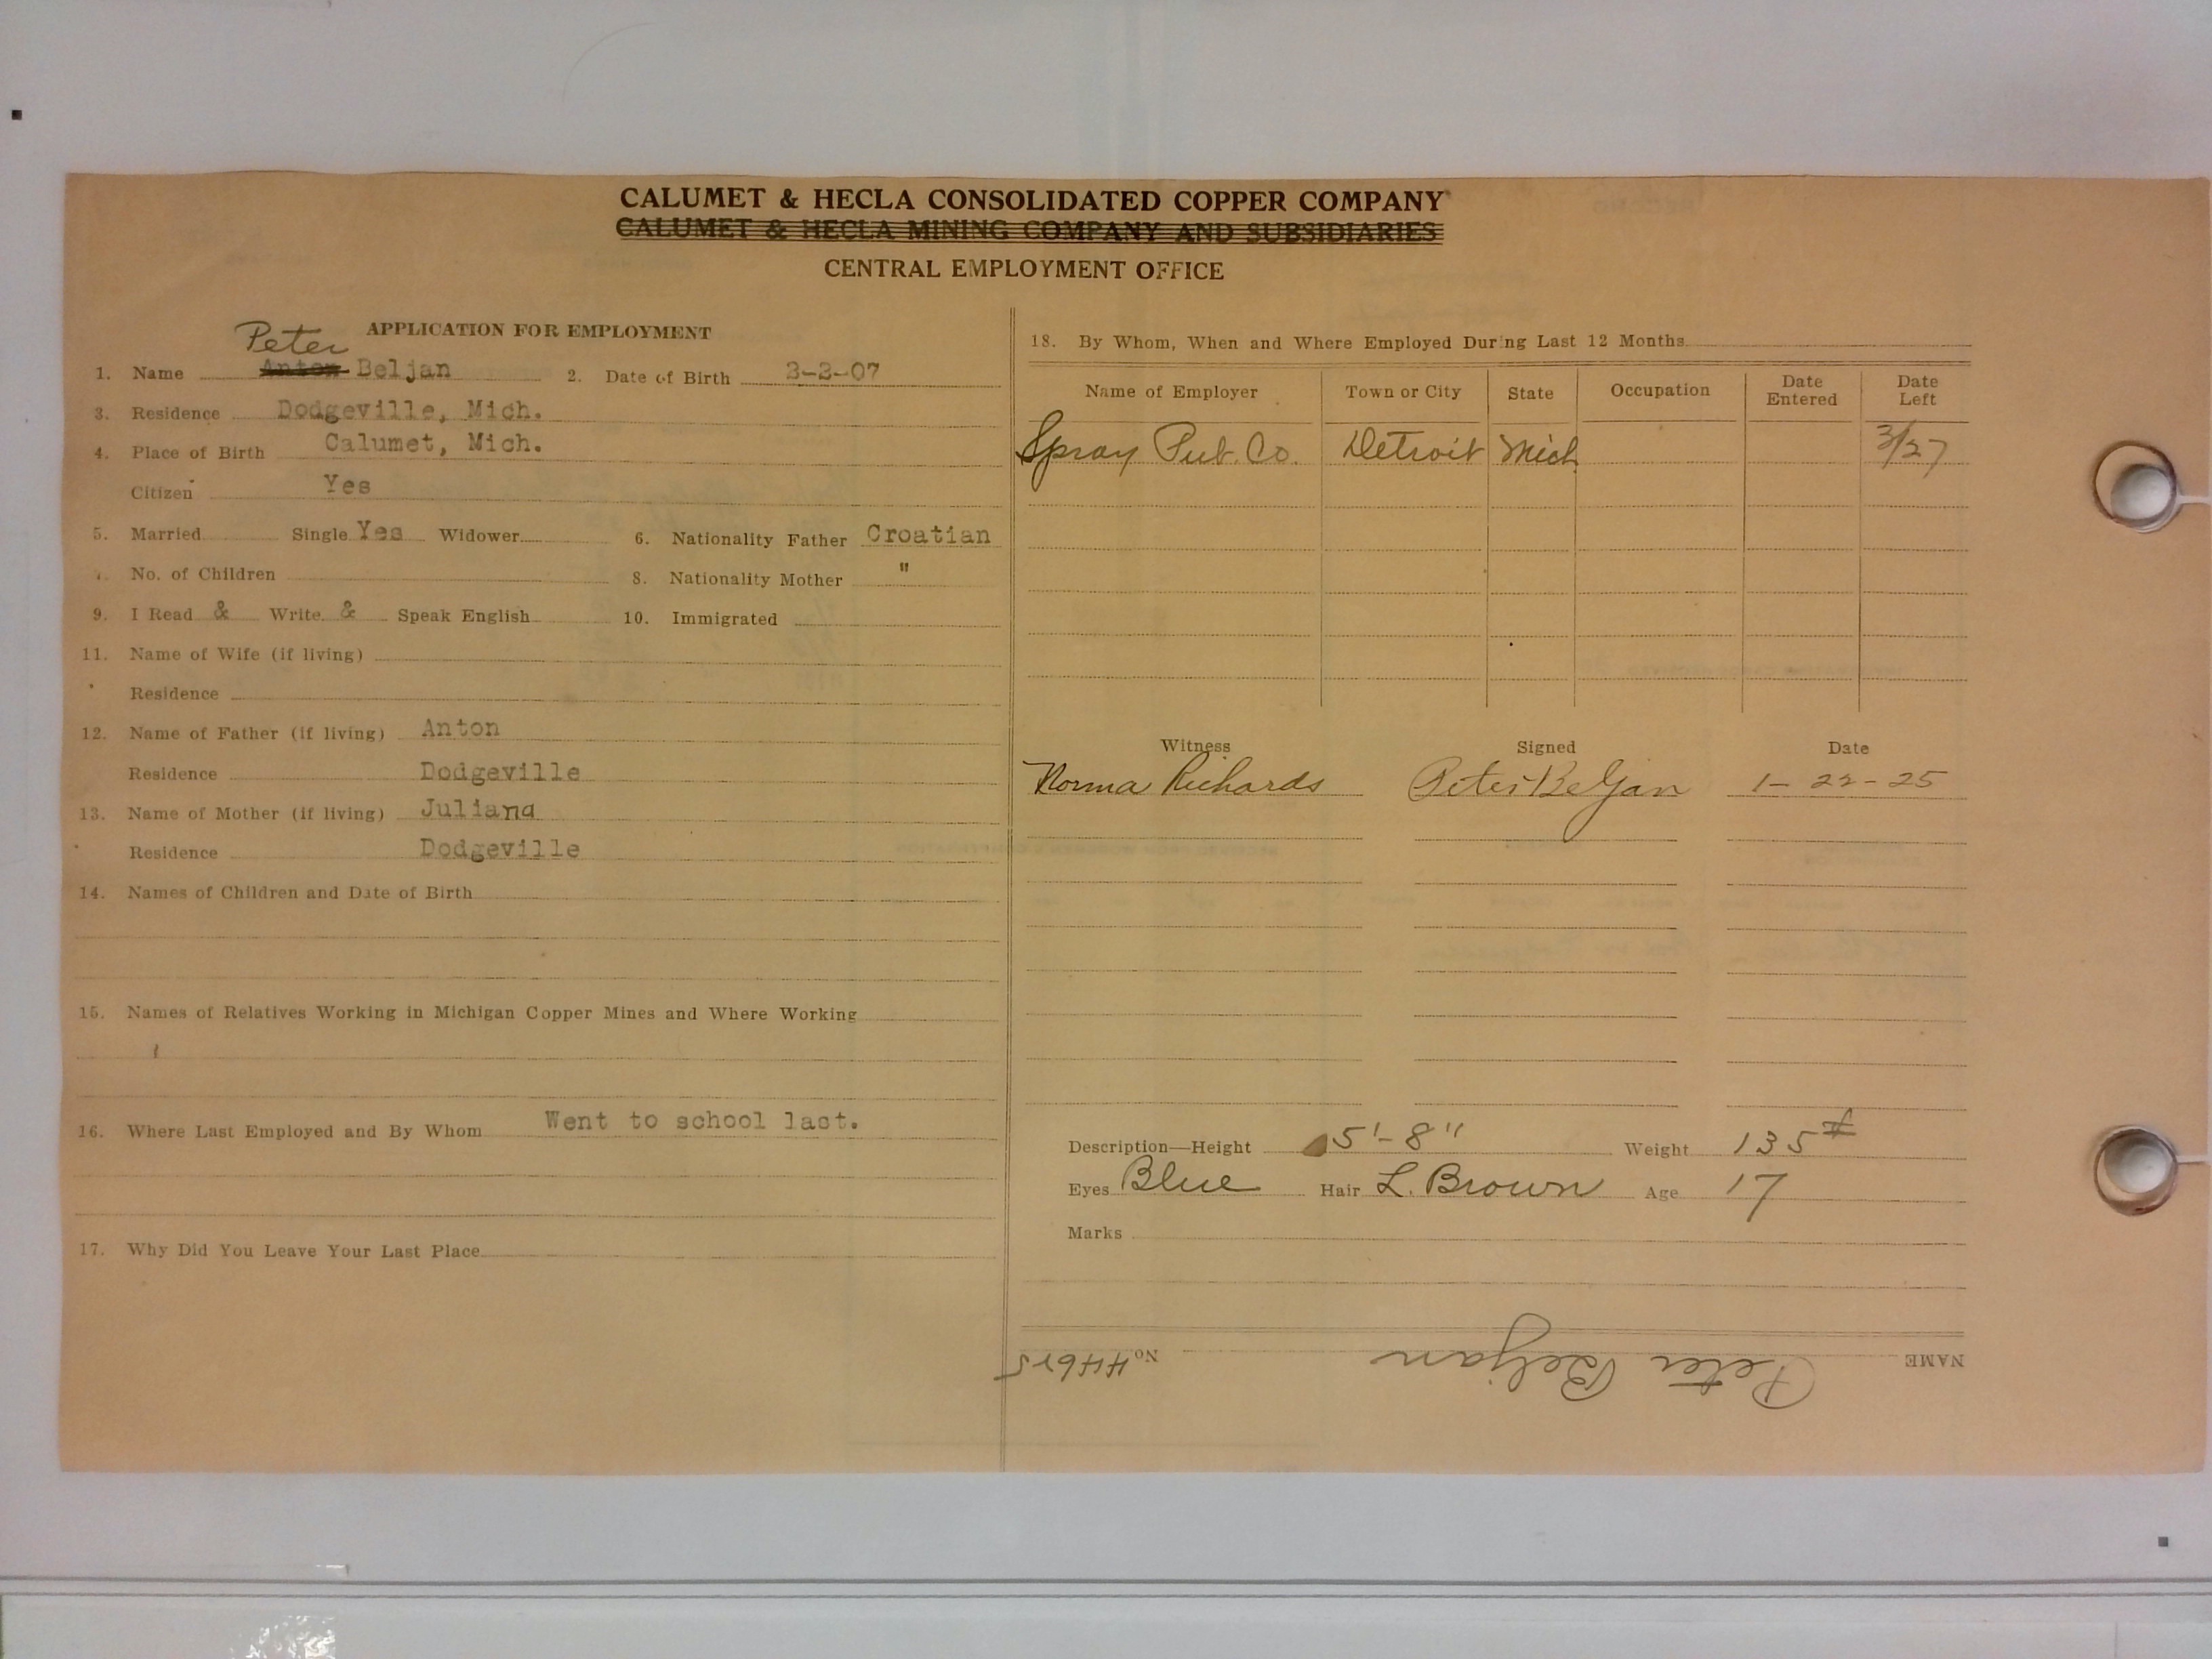 CALUMET & HECLA CONSOLIDATED COPPER COMPANY
CALUMET & HECLA MINING COMPANY AND SUBSIDIARIES
CENTRAL EMPLOYMENT OFFICE
APPLICATION FOR EMPLOYMENT
Peter
1. Name Anton Beljan 2. Date of Birth 3-2-07
3. Residence Dodgeville, Mich.
4. Place of Birth Calumet, Mich.
Citizen Yes
5. Married Single Yes Widower 6. Nationality Father Croatian
No. of Children 8. Nationality Mother "
9. I Read & Write & Speak English 10. Immigrated
11. Name of Wife (if living)
Residence
12. Name of Father (if living) Anton
Residence Dodgeville
13. Name of Mother (if living) Juliana
Residence Dodgeville
14. Names of Children and Date of Birth
15. Names of Relatives Working in Michigan Copper Mines and Where Working
16. Where Last Employed and By Whom Went to school last.
17. Why Did You Leave Your Last Place
18. By Whom, When and Where Employed During Last 12 Months
Name of Employer Town or City State Occupation Date Entered Date Left
Spray Pub. Co. Detroit Mich 3/27
Witness Signed Date
Norma Richards Peter Beljan 1-22-25
Description—Height 5'-8" Weight 135#
Eyes Blue Hair L. Brown Age 17
Marks
NAME Peter Beljan No.